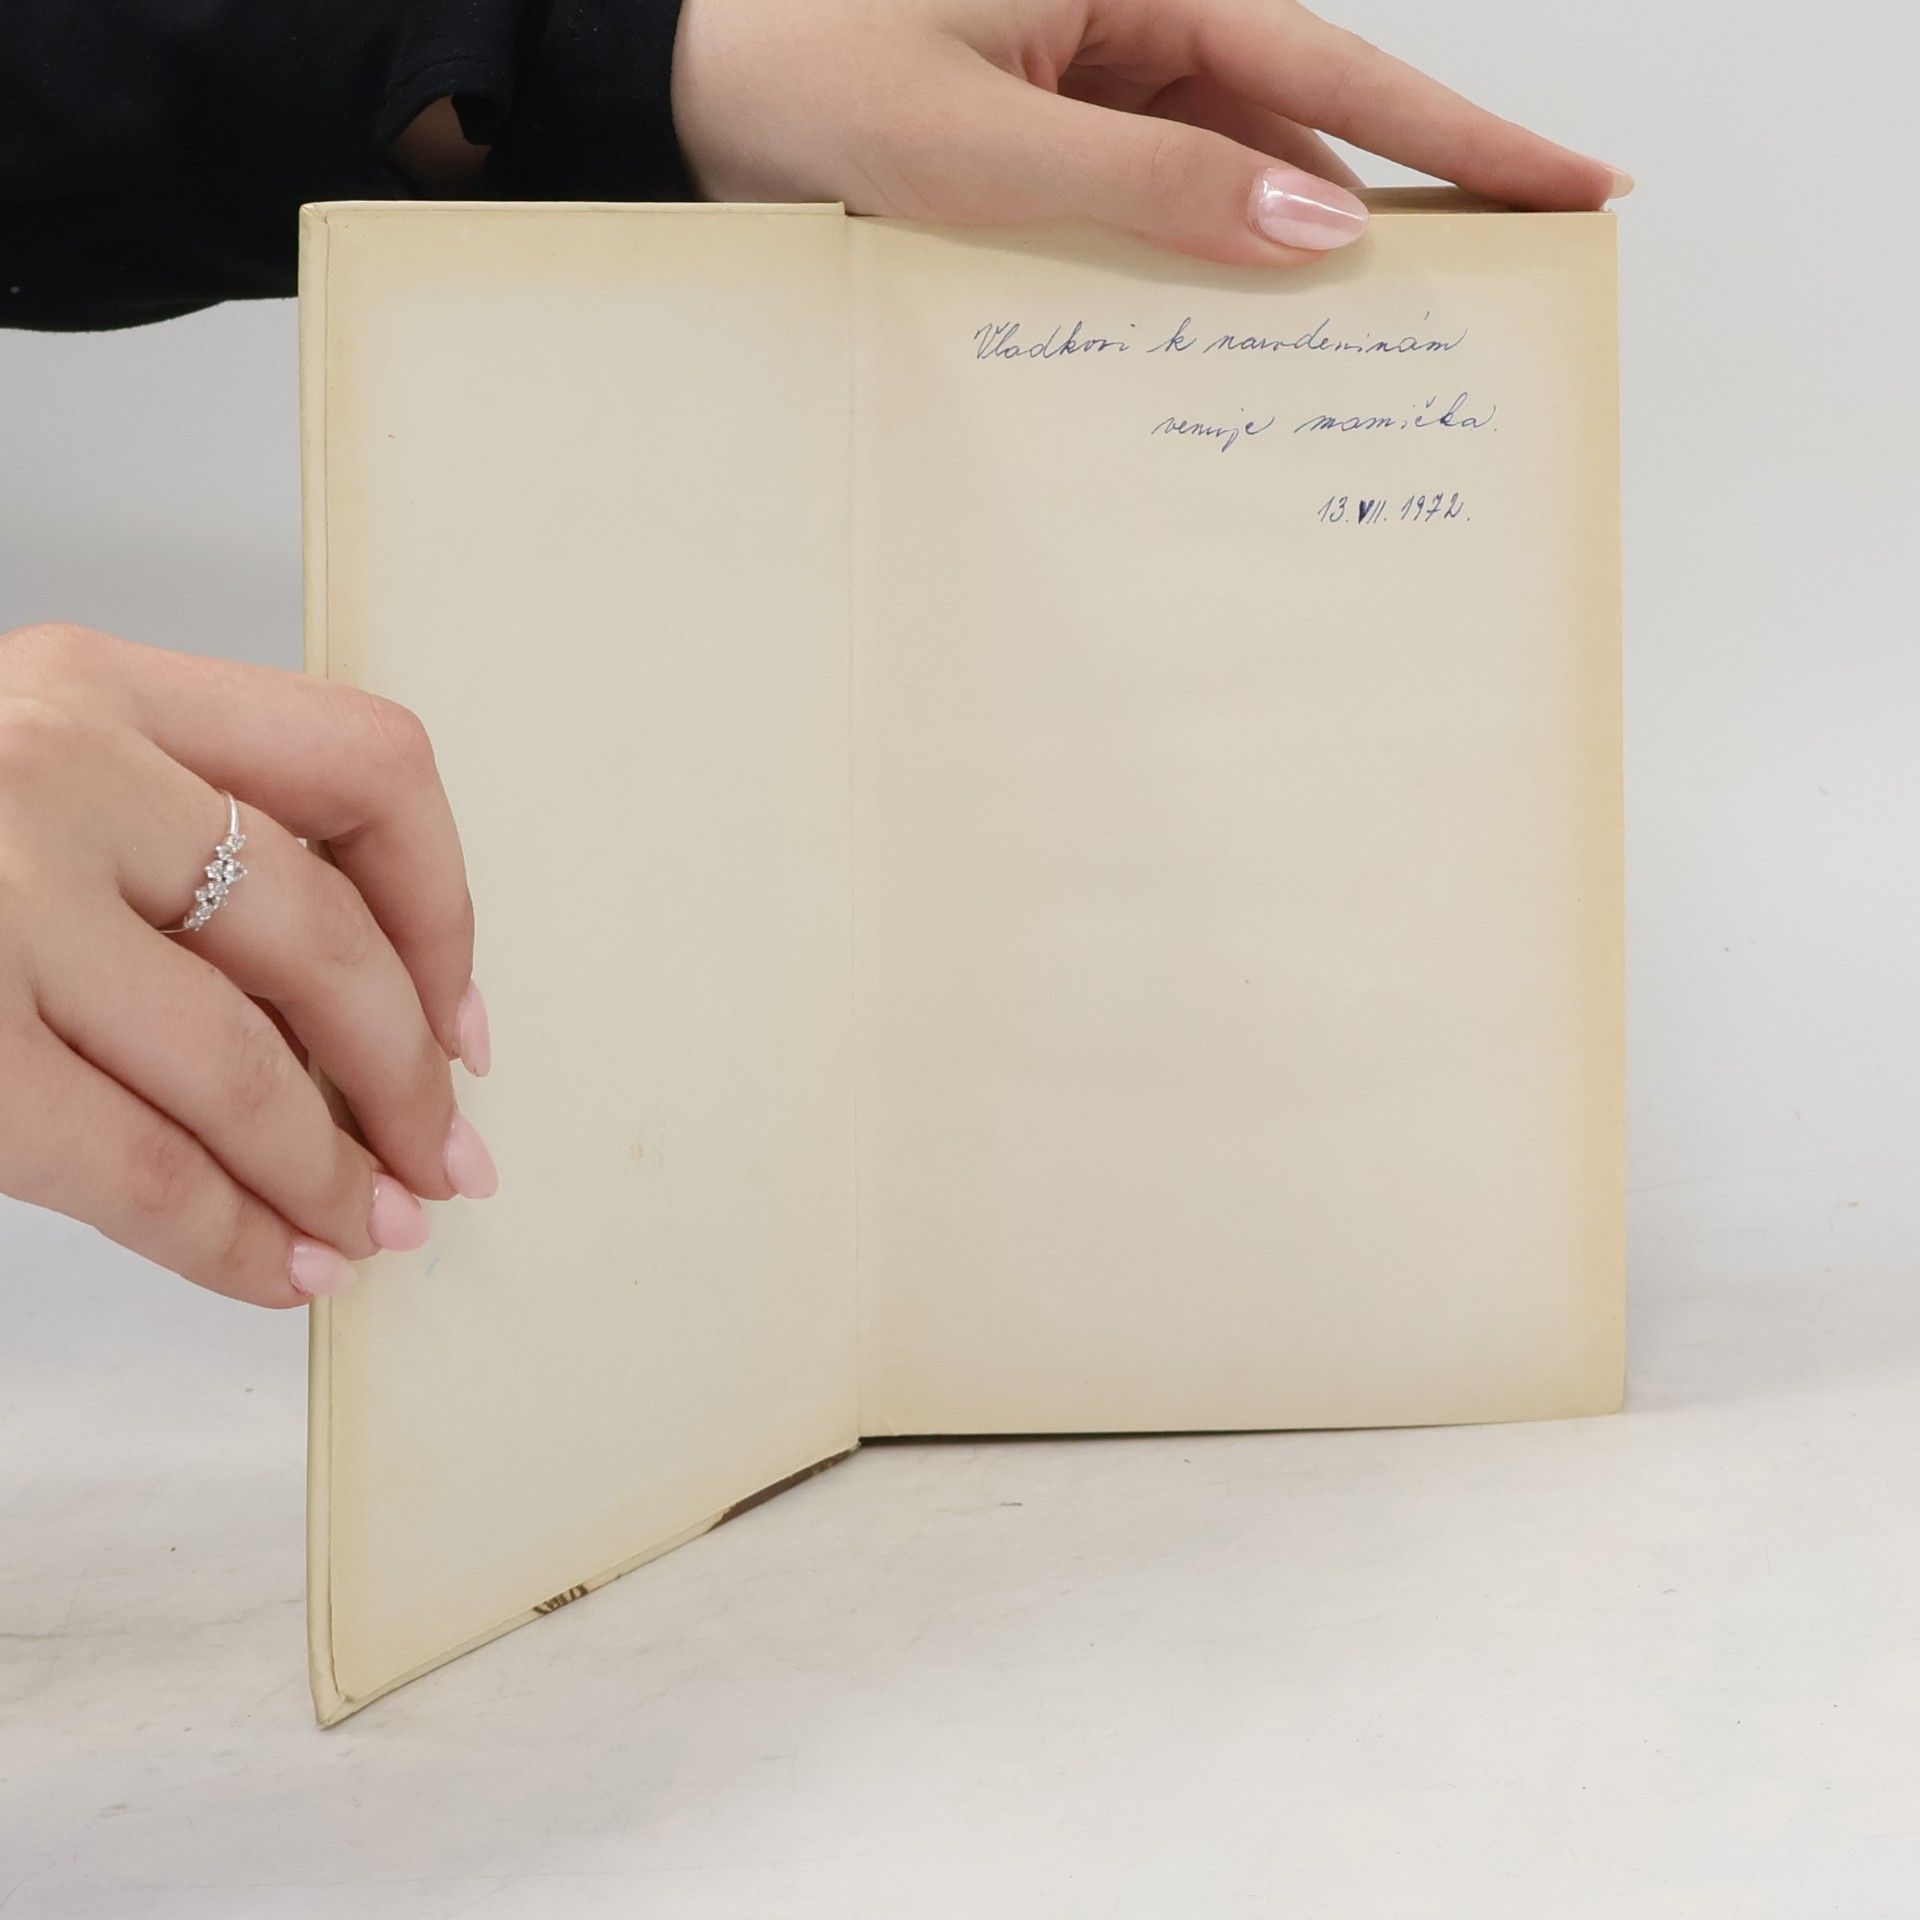 Vladkovi k narodeninám
venuje mamička.
13. VII. 1972.